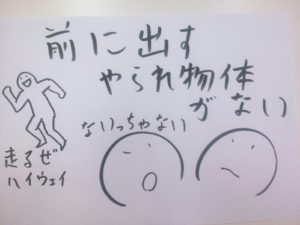 前に出す
やられ物体
がない
ないっちゃない
走るぜ
ハイウェイ